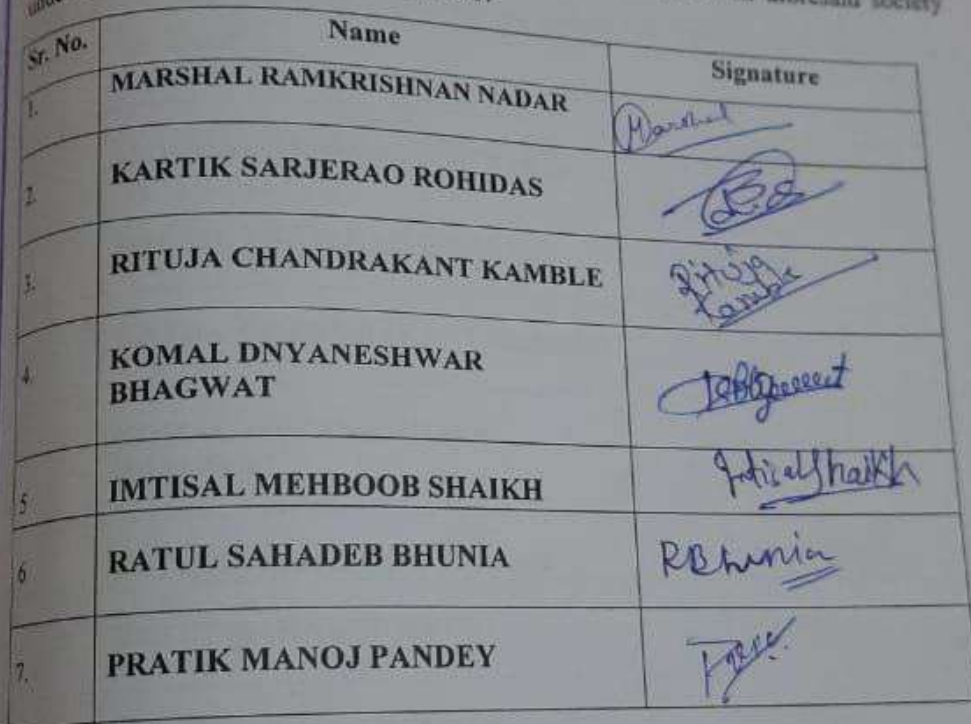 aforesaid society
Sr. No. Name Signature
1. MARSHAL RAMKRISHNAN NADAR Marshal
2. KARTIK SARJERAO ROHIDAS
3. RITUJA CHANDRAKANT KAMBLE Rituja
Kamble
4. KOMAL DNYANESHWAR
BHAGWAT
5 IMTISAL MEHBOOB SHAIKH Imtisal Shaikh
6 RATUL SAHADEB BHUNIA RBhunia
7. PRATIK MANOJ PANDEY